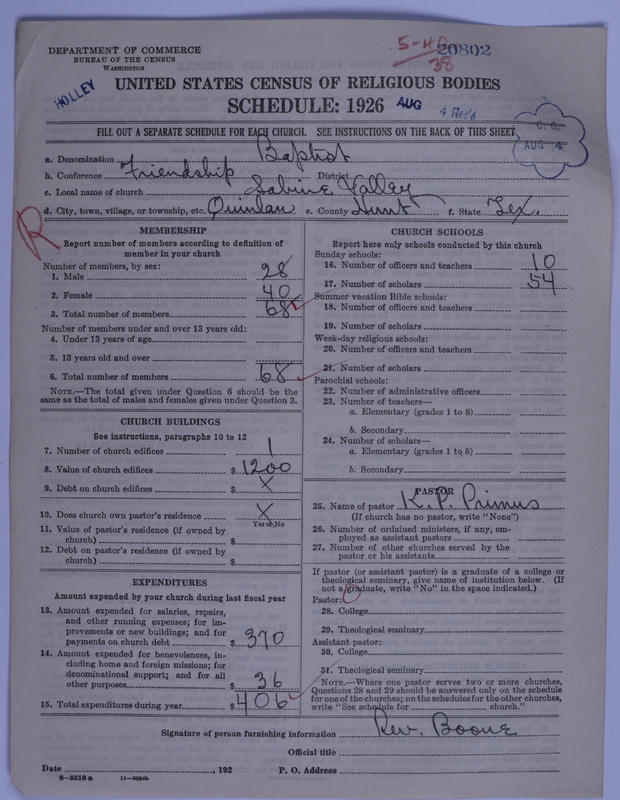 DEPARTMENT OF COMMERCE
BUREAU OF THE CENSUS
WASHINGTON
HOLLEY
5-40
38
20802
UNITED STATES CENSUS OF RELIGIOUS BODIES
SCHEDULE: 1926
AUG 4 Rec'd
FILL OUT A SEPARATE SCHEDULE FOR EACH CHURCH. SEE INSTRUCTIONS ON THE BACK OF THIS SHEET
C. G.
AUG 4
a. Denomination Baptist
b. Conference Friendship District
c. Local name of church Sabine Valley
d. City, town, village, or township, etc. Quinlan e. County Hunt f. State Tex.
R
MEMBERSHIP
Report number of members according to definition of
member in your church
Number of members, by sex:
1. Male 28
2. Female 40
3. Total number of members 68
Number of members under and over 13 years old:
4. Under 13 years of age
5. 13 years old and over
6. Total number of members 68
NOTE.—The total given under Question 6 should be the
same as the total of males and females given under Question 3.
CHURCH BUILDINGS
See instructions, paragraphs 10 to 12
7. Number of church edifices 1
8. Value of church edifices $ 1200
9. Debt on church edifices $ X
10. Does church own pastor's residence X
Yes or No
11. Value of pastor's residence (if owned by
church) $
12. Debt on pastor's residence (if owned by
church) $
EXPENDITURES
Amount expended by your church during last fiscal year
13. Amount expended for salaries, repairs,
and other running expenses; for im-
provements or new buildings; and for
payments on church debt $ 370
14. Amount expended for benevolences, in-
cluding home and foreign missions; for
denominational support; and for all
other purposes $ 36
15. Total expenditures during year $ 406
CHURCH SCHOOLS
Report here only schools conducted by this church
Sunday schools:
16. Number of officers and teachers 10
17. Number of scholars 54
Summer vacation Bible schools:
18. Number of officers and teachers
19. Number of scholars
Week-day religious schools:
20. Number of officers and teachers
21. Number of scholars
Parochial schools:
22. Number of administrative officers
23. Number of teachers—
a. Elementary (grades 1 to 8)
b. Secondary
24. Number of scholars—
a. Elementary (grades 1 to 8)
b. Secondary
PASTOR
25. Name of pastor K. P. Primus
(If church has no pastor, write "None")
26. Number of ordained ministers, if any, em-
ployed as assistant pastors
27. Number of other churches served by the
pastor or his assistants
If pastor (or assistant pastor) is a graduate of a college or
theological seminary, give name of institution below. (If
not a graduate, write "No" in the space indicated.)
Pastor:
28. College
29. Theological seminary
Assistant pastor:
30. College
31. Theological seminary
NOTE.—Where one pastor serves two or more churches,
Questions 28 and 29 should be answered only on the schedule
for one of the churches; on the schedules for the other churches,
write "See schedule for church."
Signature of person furnishing information Rev. Boone
Official title
Date , 192 P. O. Address
8-5518a 11-9024b